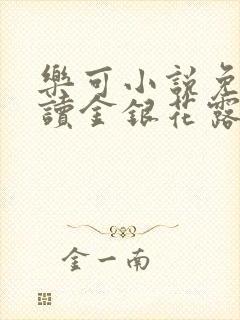 樂可小說免
讀金銀花露
金一南